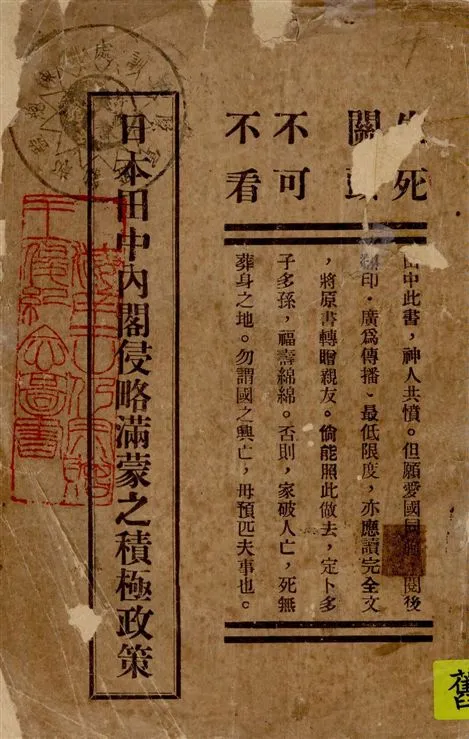 生死
關頭
不可
不看
田中此書，神人共憤。但願愛國同　閱後
翻印．廣爲傳播、最低限度，亦應讀完全文
，將原書轉贈親友。倘能照此做去，定卜多
子多孫，福壽綿綿。否則，家破人亡，死無
葬身之地。勿謂國之興亡，毋預匹夫事也。
日本田中內閣侵略滿蒙之積極政策
舊